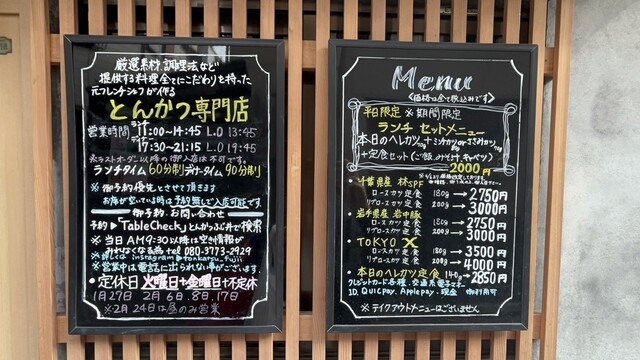 厳選素材、調理法など
提供する料理全てにこだわりを持った
元フレンチシェフが作る
とんかつ専門店
営業時間 ランチ 11:00〜14:45 L.O 13:45
ディナー 17:30〜21:15 L.O 19:45
※ラストオーダー以降の御入店は不可です。
ランチタイム60分制 ディナータイム90分制
※御予約優先とさせて頂きます
お席が空いている時は予約無しで入店可能です。
御予約・お問い合わせ
予約▶「TableCheck」とんかつふじ井で検索
※当日AM9:30以降は空き情報が
みれなくなる為 tel 080-3773-2929
※詳しくは instagram@tonkatsu_fujii
※営業中は電話に出られない事がございます。
・定休日 火曜日+金曜日+不定休
1月27日 2月6日.8日.17日
※2月24日は昼のみ営業
Menu
〈価格は全て税込みです〉
平日限定 ※期間限定
ランチセットメニュー
本日のヒレカツ+ミンチカツorささみカツ
+定食セット(ご飯,みそ汁,キャベツ)
2000円
・千葉県産 林SPF
ロースカツ定食 180g→2750円
リブロースカツ定食 200g→3000円
・岩手県産 岩中豚
ロースカツ定食 180g→2750円
リブロースカツ定食 200g→3000円
・TOKYO X
ロースカツ定食 180g→3500円
リブロースカツ定食 200g→4000円
・本日のヒレカツ定食 140g→2850円
クレジットカード各種、交通系電子マネー
ID、QUICpay、Applepay、現金 御利用可
※テイクアウトメニューはございません